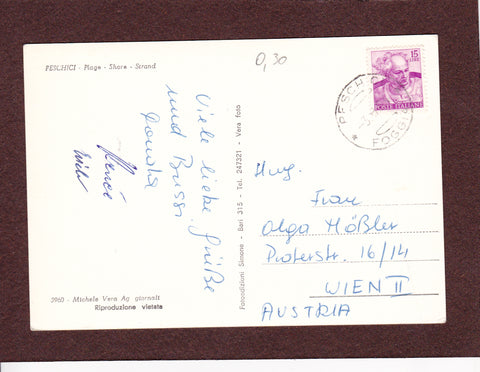 0,30
PESCHICI - Plage - Shore - Strand
15
LIRE
POSTE ITALIANE
PESCHICI
FOGGIA
Viele liebe Grüße
und Bussi
Renée
Fotoedizioni Simone - Bari 315 - Tel. 247321 - Vera foto
Hug.
Frau
Olga Mößler
Praterstr. 16/14
WIEN II
AUSTRIA
3960 - Michele Vera Ag giornali
Riproduzione vietata